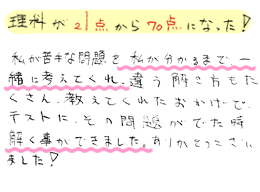 理科が21点から70点になった!
私が苦手な問題を私が分かるまで、一
緒に考えてくれ、違う解き方もた
くさん、教えてくれたおかげで、
テストに、その問題がでた時
解く事ができました。ありがとうござい
ました!